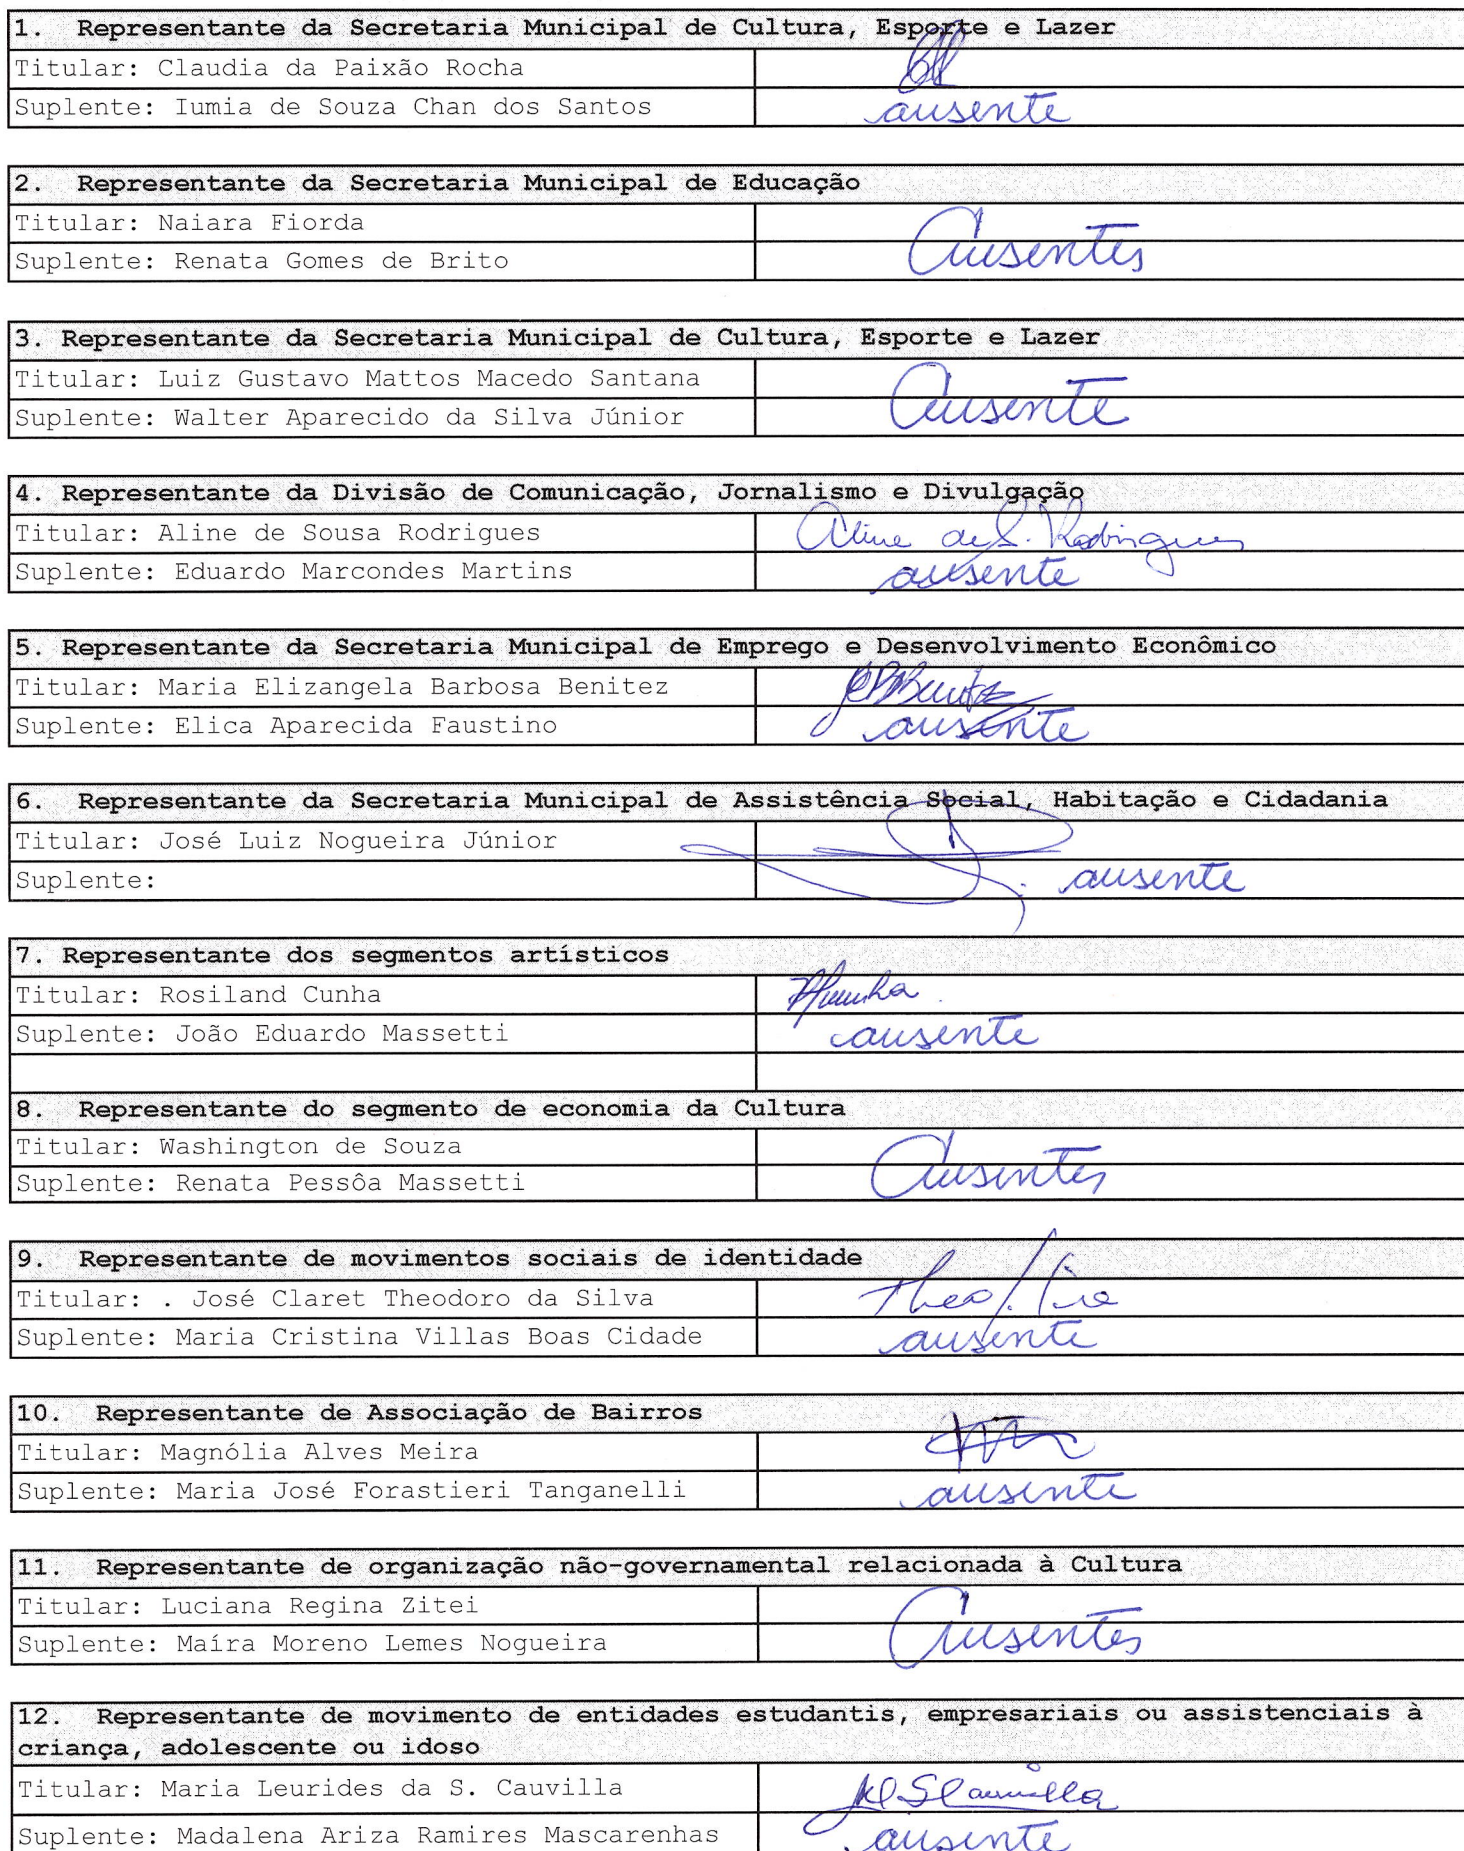 1. Representante da Secretaria Municipal de Cultura, Esporte e Lazer
Titular: Claudia da Paixão Rocha
Suplente: Iumia de Souza Chan dos Santos ausente
2. Representante da Secretaria Municipal de Educação
Titular: Naiara Fiorda
Suplente: Renata Gomes de Brito Ausentes
3. Representante da Secretaria Municipal de Cultura, Esporte e Lazer
Titular: Luiz Gustavo Mattos Macedo Santana
Suplente: Walter Aparecido da Silva Júnior Ausente
4. Representante da Divisão de Comunicação, Jornalismo e Divulgação
Titular: Aline de Sousa Rodrigues Aline de S. Rodrigues
Suplente: Eduardo Marcondes Martins ausente
5. Representante da Secretaria Municipal de Emprego e Desenvolvimento Econômico
Titular: Maria Elizangela Barbosa Benitez
Suplente: Elica Aparecida Faustino ausente
6. Representante da Secretaria Municipal de Assistência Social, Habitação e Cidadania
Titular: José Luiz Nogueira Júnior
Suplente: ausente
7. Representante dos segmentos artísticos
Titular: Rosiland Cunha
Suplente: João Eduardo Massetti ausente
8. Representante do segmento de economia da Cultura
Titular: Washington de Souza
Suplente: Renata Pessôa Massetti Ausentes
9. Representante de movimentos sociais de identidade
Titular: . José Claret Theodoro da Silva
Suplente: Maria Cristina Villas Boas Cidade ausente
10. Representante de Associação de Bairros
Titular: Magnólia Alves Meira
Suplente: Maria José Forastieri Tanganelli ausente
11. Representante de organização não-governamental relacionada à Cultura
Titular: Luciana Regina Zitei
Suplente: Maíra Moreno Lemes Nogueira Ausentes
12. Representante de movimento de entidades estudantis, empresariais ou assistenciais à
criança, adolescente ou idoso
Titular: Maria Leurides da S. Cauvilla
Suplente: Madalena Ariza Ramires Mascarenhas ausente